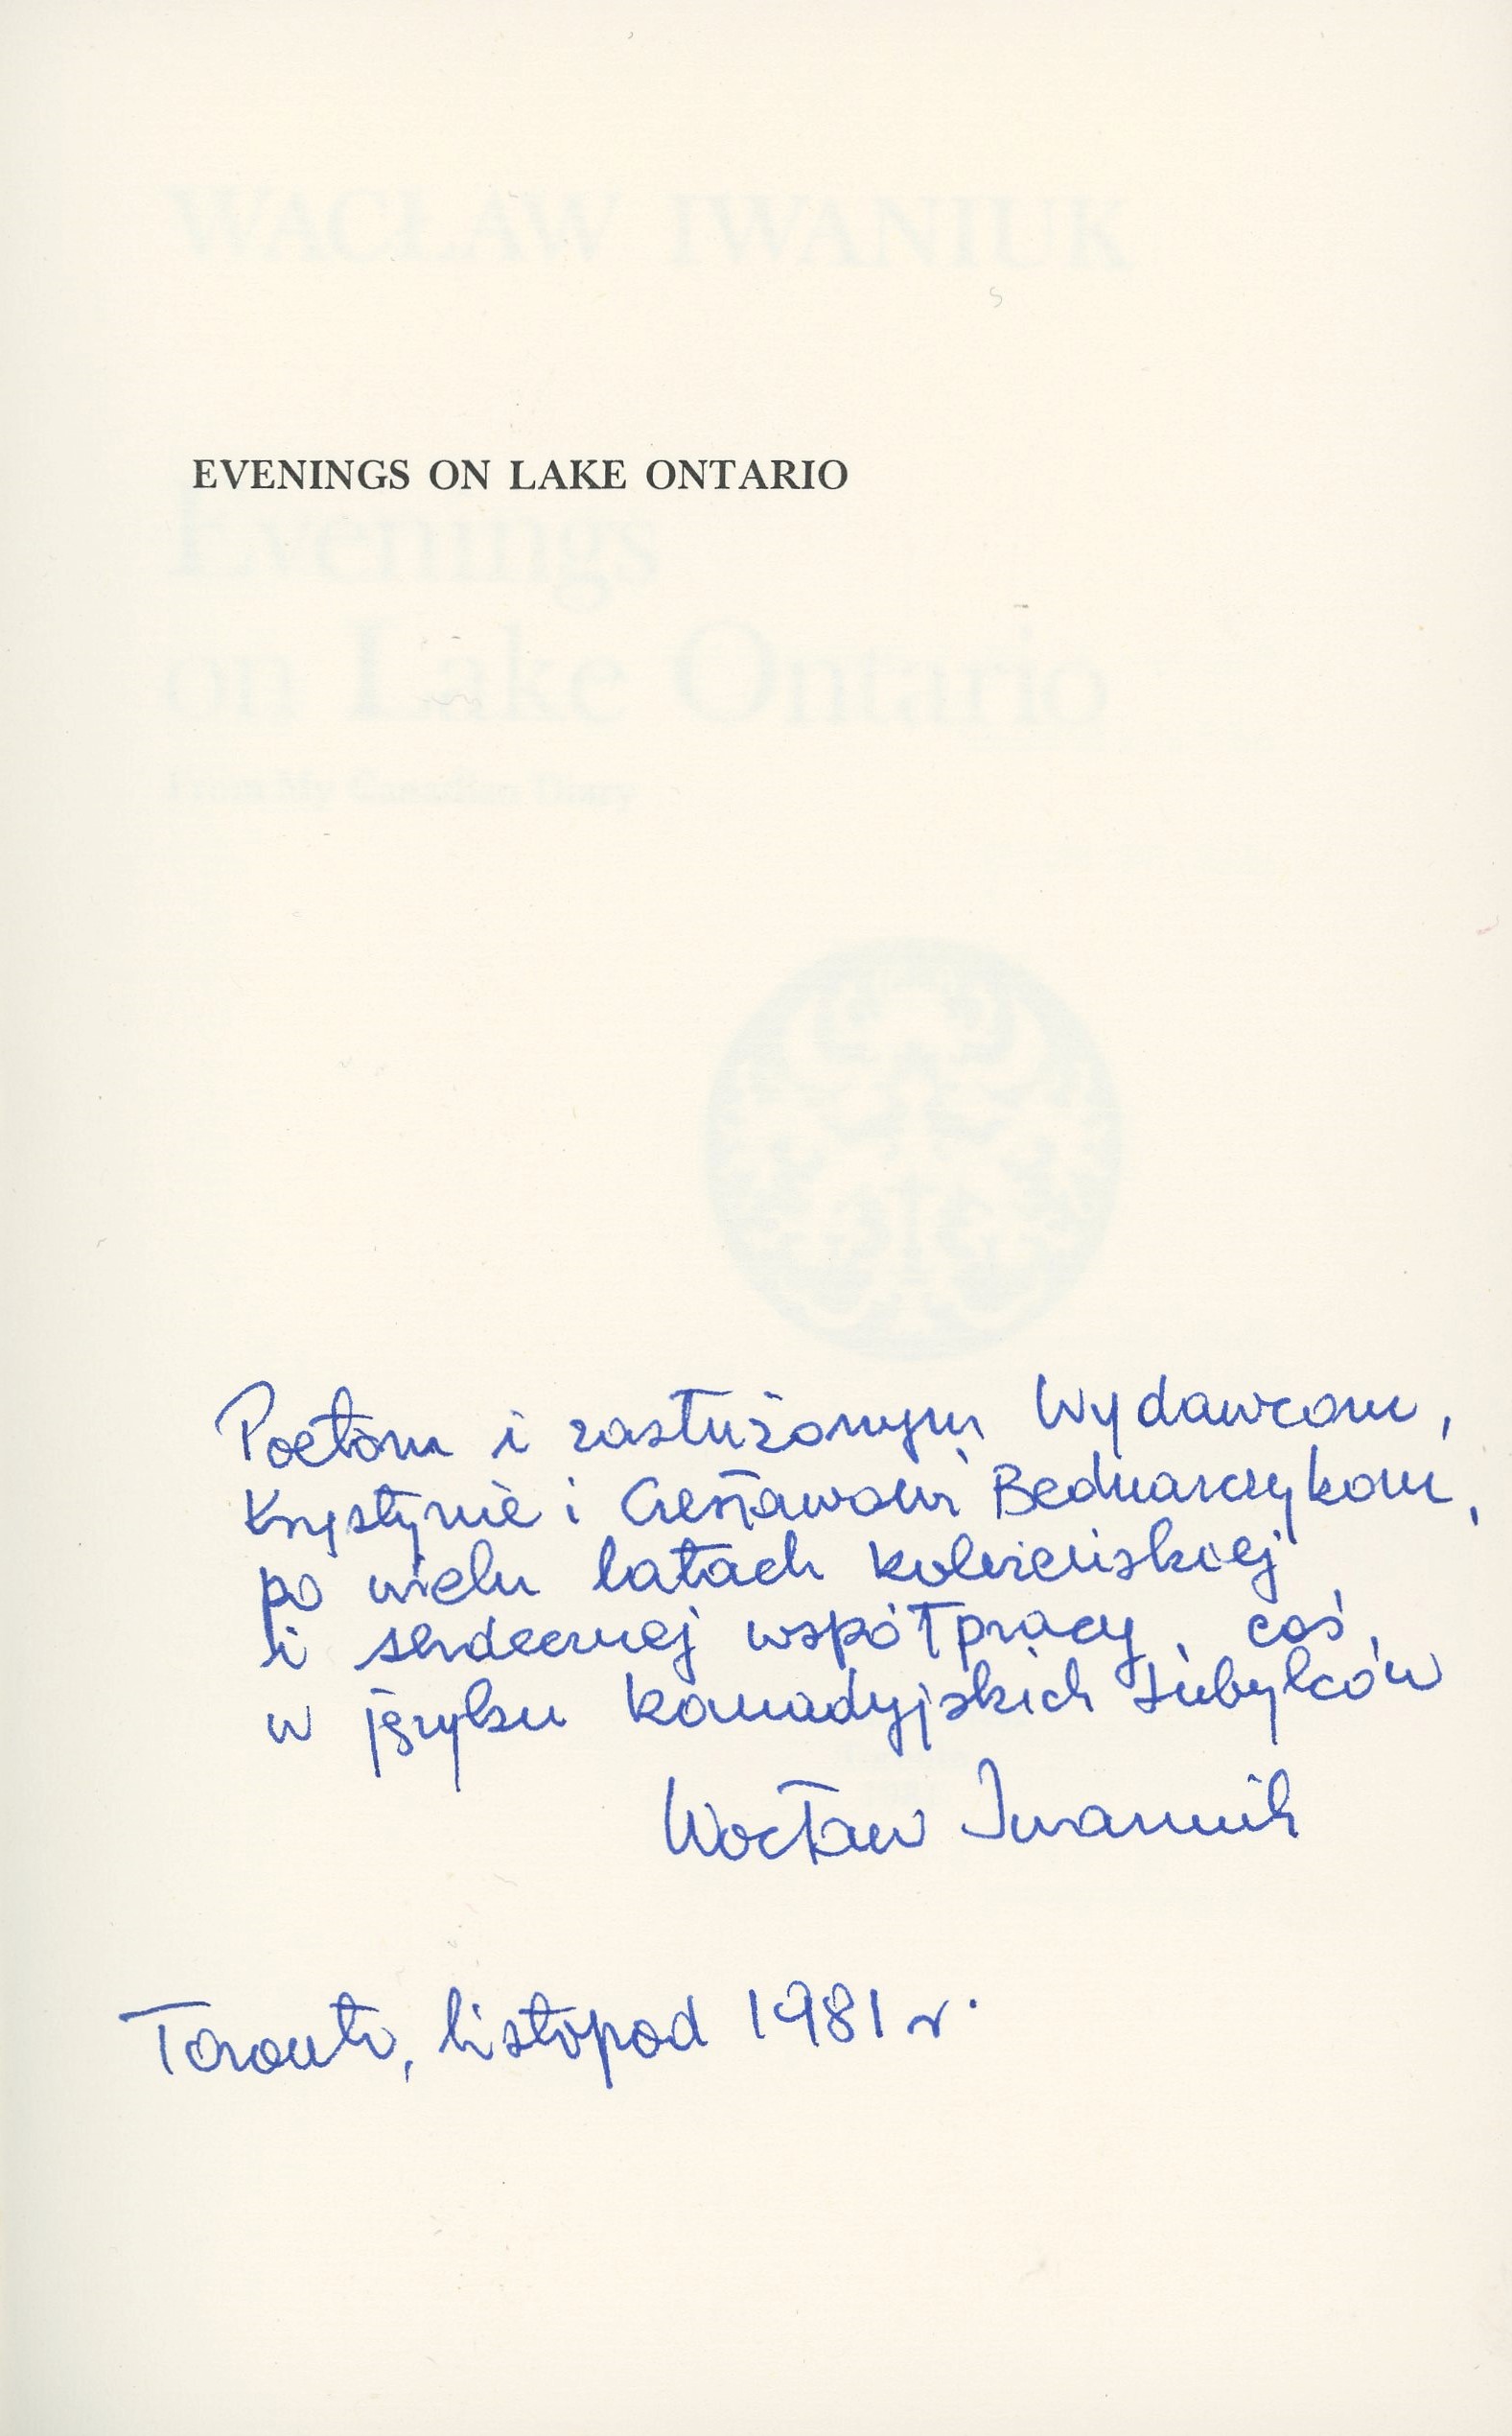 WACŁAW IWANIUK
EVENINGS ON LAKE ONTARIO
Evenings
on Lake Ontario
From My Canadian Diary
Poetom i zasłużonym Wydawcom,
Krystynie i Czesławowi Bednarczykom,
po wielu latach koleżeńskiej
i serdecznej współpracy, coś
w języku kanadyjskich tubylców
Wacław Iwaniuk
Toronto, listopad 1981 r.